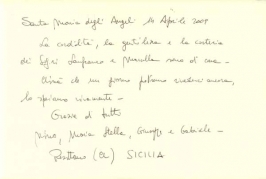 Santa Maria degli Angeli 14 Aprile 2009
La cordialità, la gentilezza e la cortesia
di Marcella sono di una
che un giorno potremo ancora,
lo speriamo vivamente -
Grazie di tutto
Mimo, Maria Stella, Giuseppe e Gabriele -
(CL) SICILIA